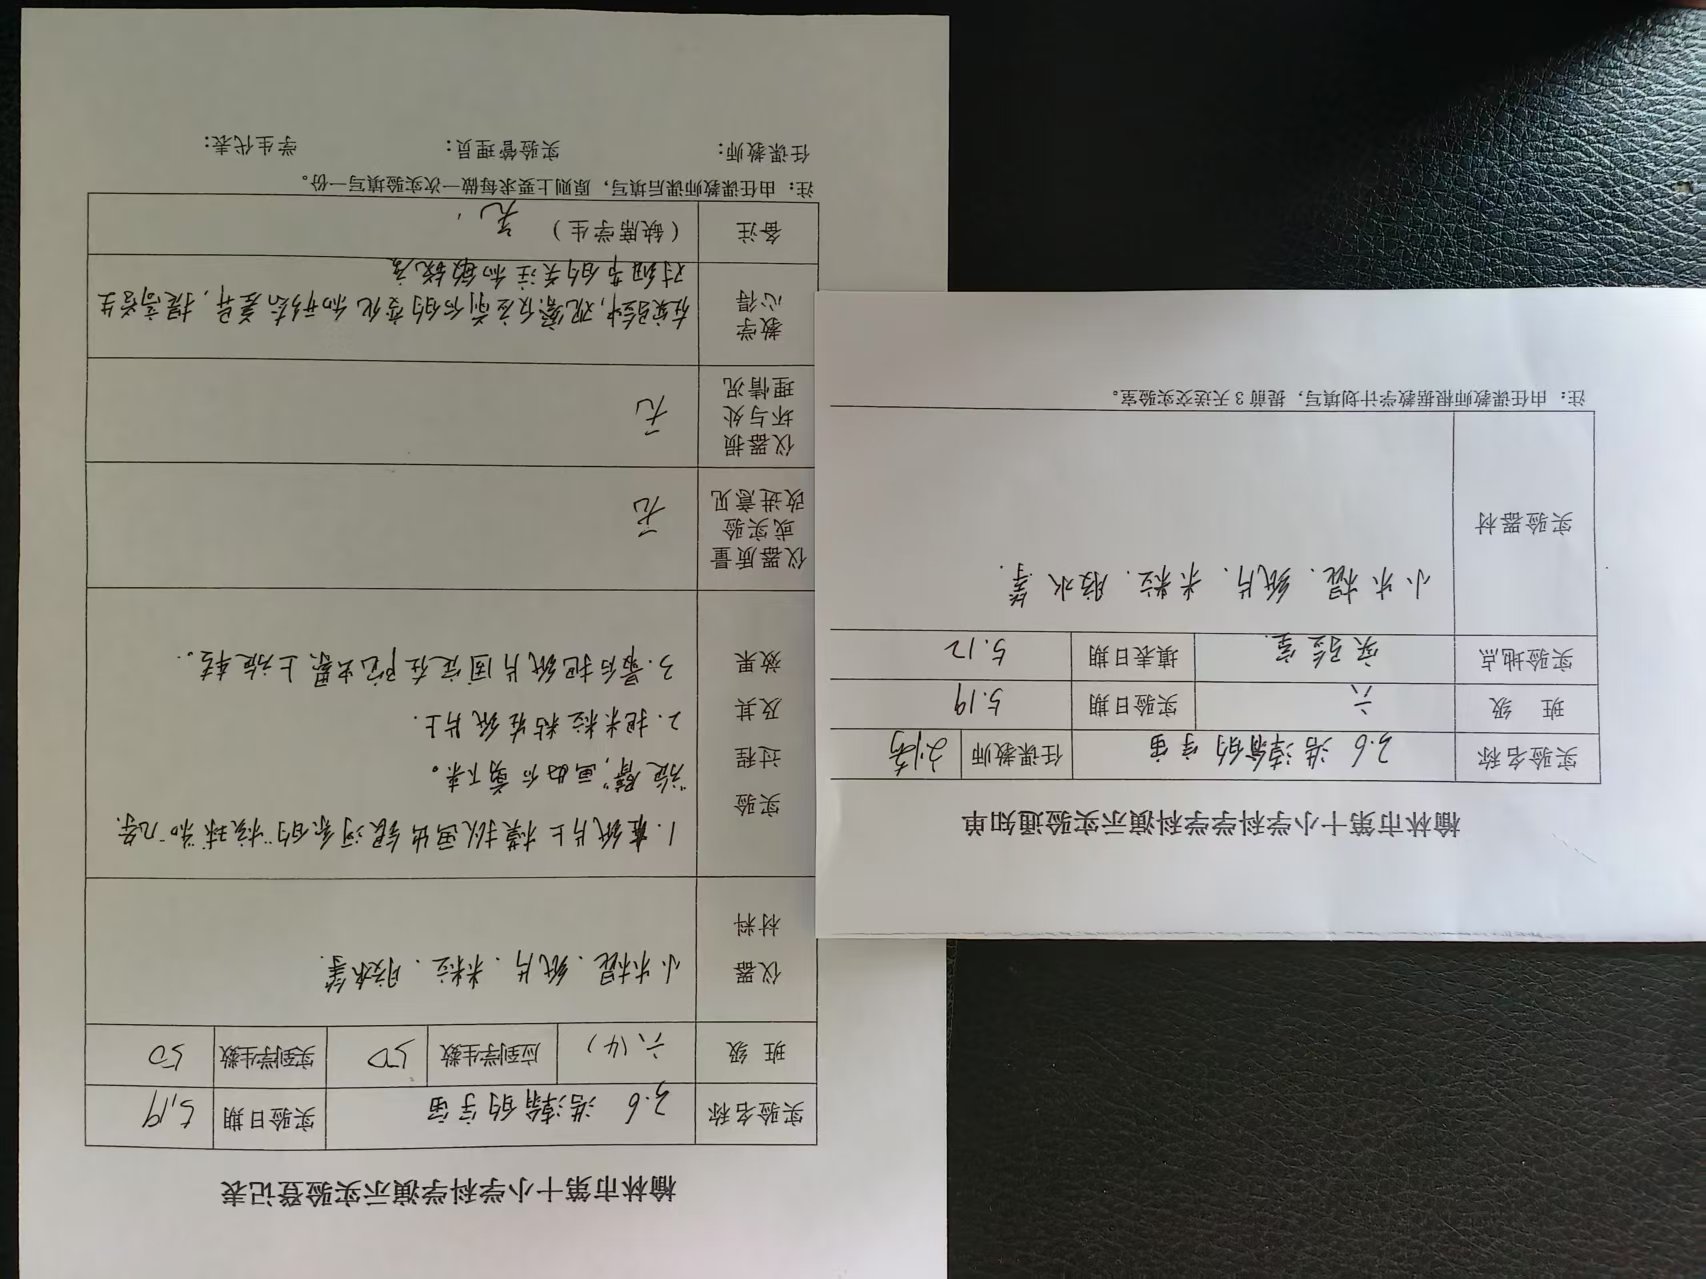 榆林市第十小学科学演示实验登记表
实验名称 3.6 浩瀚的宇宙 实验日期 5.19
班 级 六(4) 应到学生数 50 实到学生数 50
仪器
材料
小木棍、纸片、米粒、胶水等
实验
过程
及其
效果
1.在纸片上模拟画出银河系的“核球”和“几条
“旋臂”,画好后剪下来。
2.把米粒粘在纸片上.
3.最后把纸片固定在
上旋转。
仪器质量
或实验
改进意见
无
仪器损
坏与处
理情况
无
教学
心得
在实验中,观察反应前后的变化和形态差异,提高学生
对细节的关注和敏锐度
备注 (缺席学生) 无
注:由任课教师课后填写,原则上要求每做一次实验填写一份。
任课教师: 实验管理员: 学生代表:
榆林市第十小学科学学科演示实验通知单
实验名称 3.6 浩瀚的宇宙 任课教师
班 级 六 实验日期 5.19
实验地点 实验室 填表日期 5.12
实验器材 小木棍、纸片、米粒、胶水等
注:由任课教师根据教学计划填写,提前3天送交实验室。